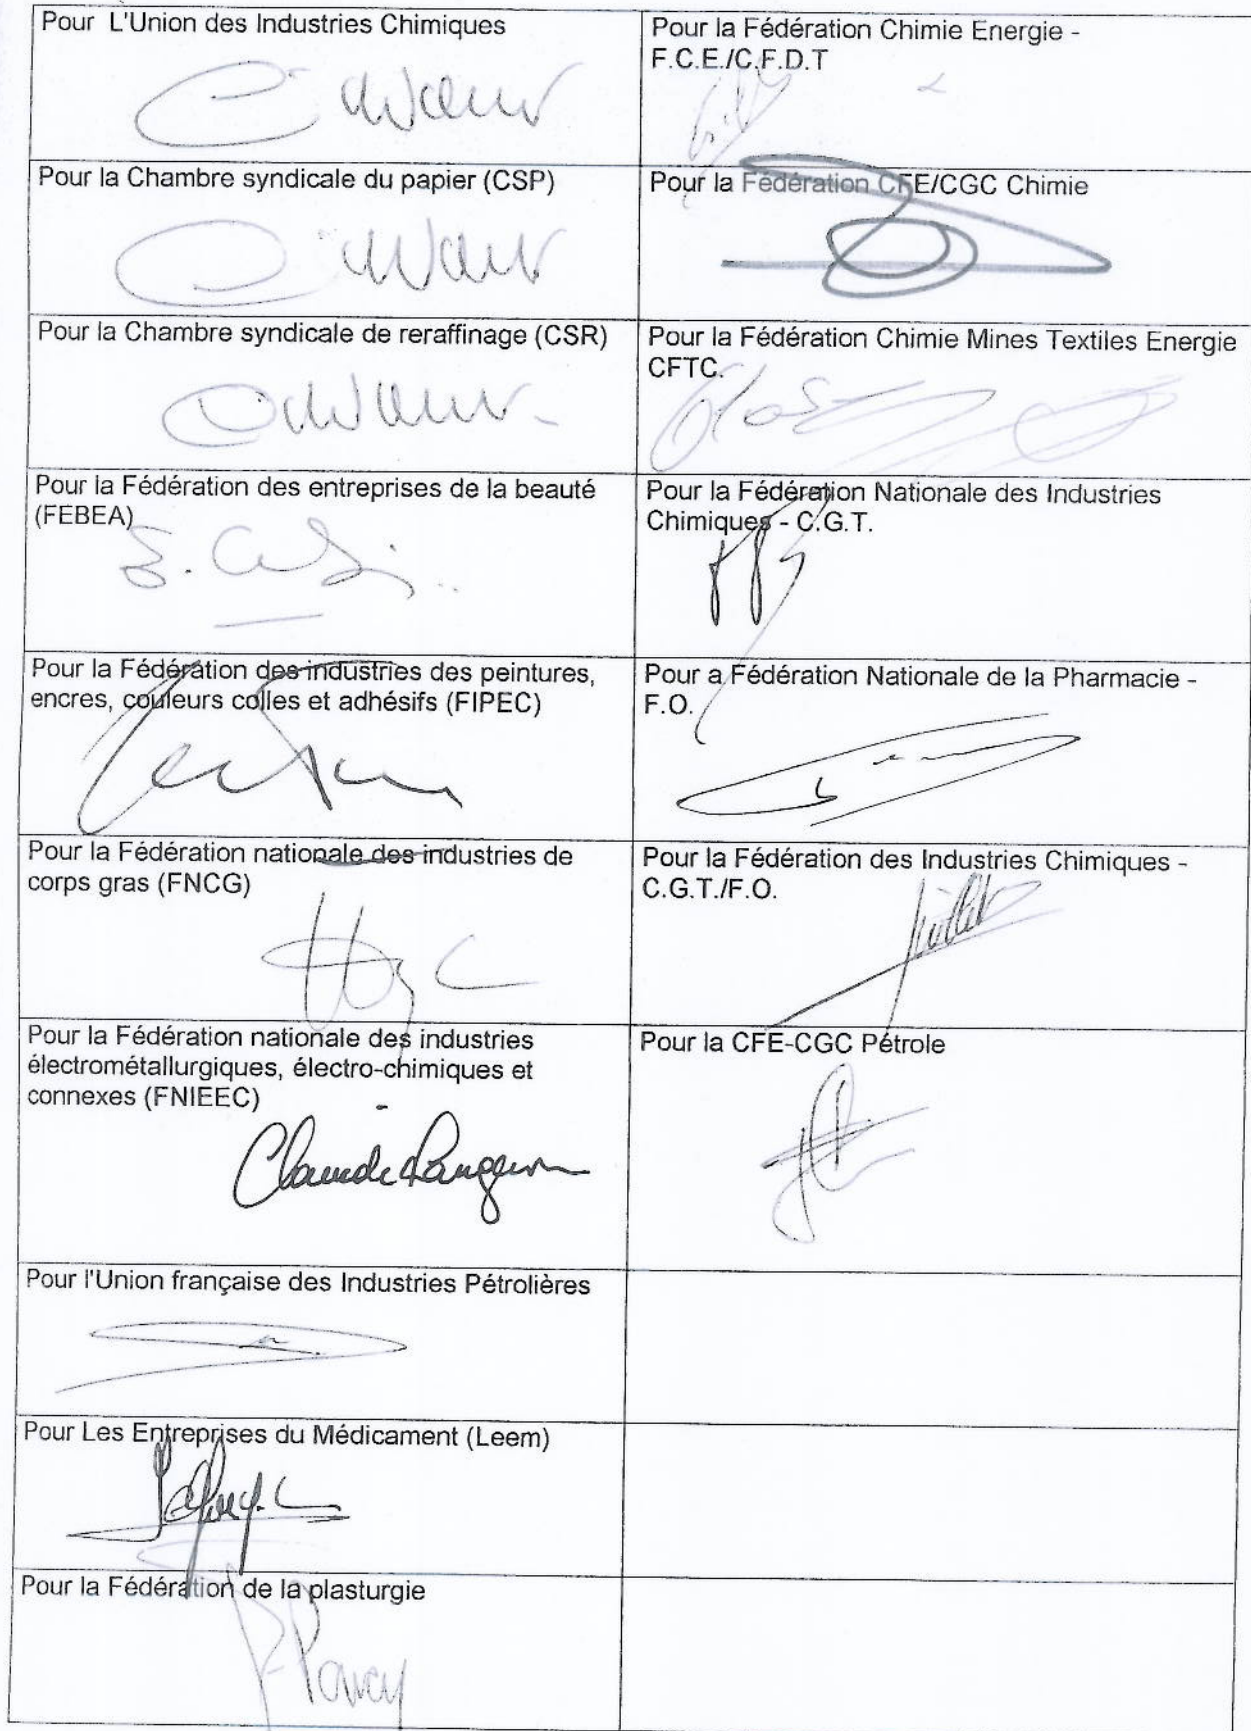 Pour L'Union des Industries Chimiques
Pour la Fédération Chimie Energie -
F.C.E./C.F.D.T
Pour la Chambre syndicale du papier (CSP)
Pour la Fédération CFE/CGC Chimie
Pour la Chambre syndicale de reraffinage (CSR)
Pour la Fédération Chimie Mines Textiles Energie
CFTC.
Pour la Fédération des entreprises de la beauté
(FEBEA)
Pour la Fédération Nationale des Industries
Chimiques - C.G.T.
Pour la Fédération des industries des peintures,
encres, couleurs colles et adhésifs (FIPEC)
Pour a Fédération Nationale de la Pharmacie -
F.O.
Pour la Fédération nationale des industries de
corps gras (FNCG)
Pour la Fédération des Industries Chimiques -
C.G.T./F.O.
Pour la Fédération nationale des industries
électrométallurgiques, électro-chimiques et
connexes (FNIEEC)
Claude
Pour la CFE-CGC Pétrole
Pour l'Union française des Industries Pétrolières
Pour Les Entreprises du Médicament (Leem)
Pour la Fédération de la plasturgie